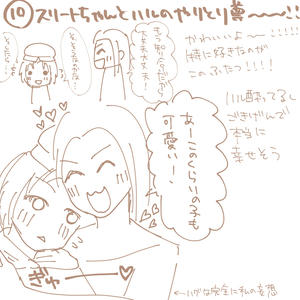 ⑩スリートちゃんとハルのやりとり真〜〜〜!!
かわいいよ〜!!!!
特に好きなのが
このふたつ!!!!
ハル酔ってるし
ごきげんで
本当に
幸せそう
大丈夫大丈夫!
あーこのくらいの子も
可愛いー!
ぎゅーーー♡
←ハグは完全に私の妄想